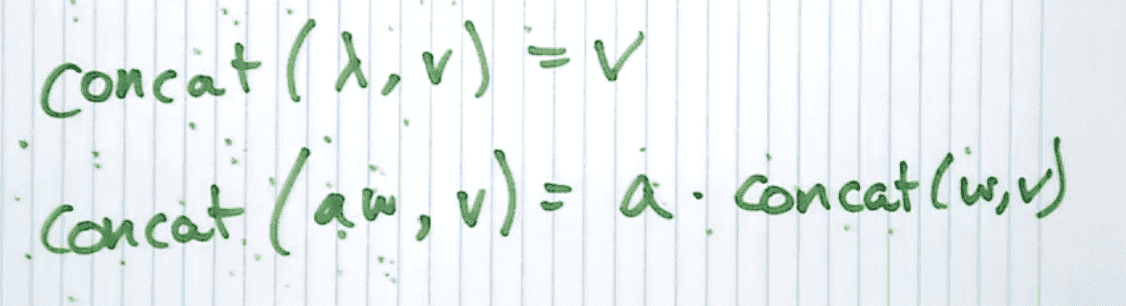 concat(λ, v) = v
concat(aw, v) = a · concat(w,v)